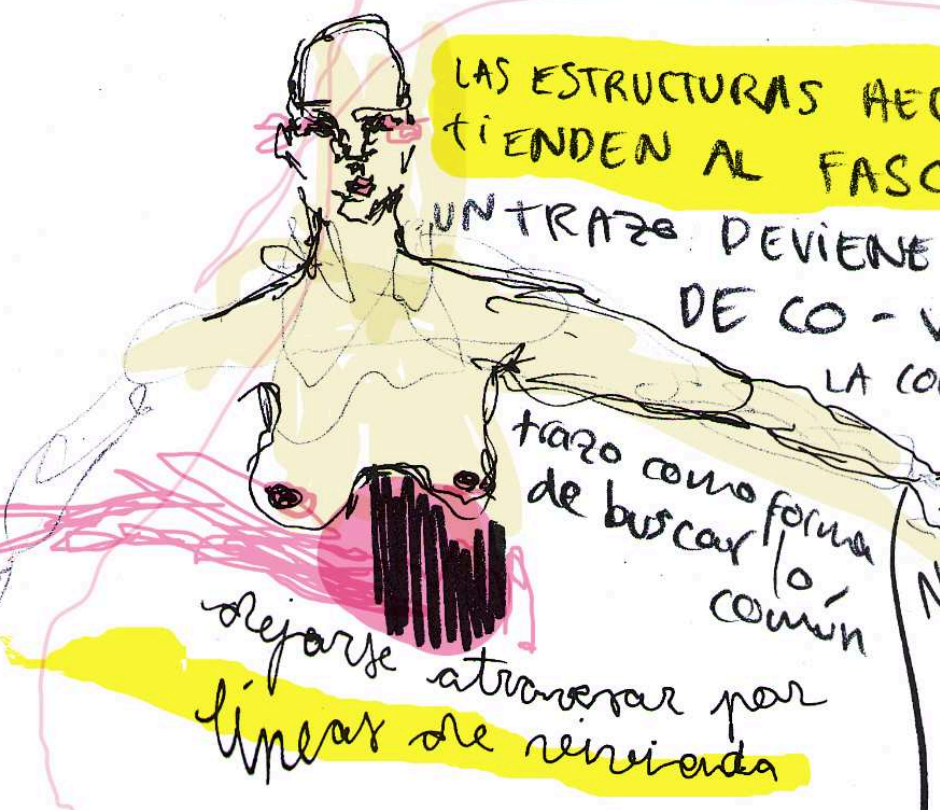 LAS ESTRUCTURAS HEC
tiENDEN AL FASC
UN TRAZO DEVIENE
DE CO - V
LA CO
trazo como forma
de buscar lo
común
N
dejarse atravesar por
líneas de